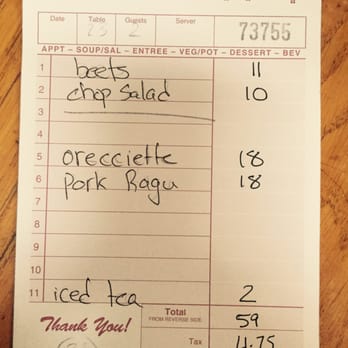 Date Table Guests Server
23 2 73755
APPT – SOUP/SAL – ENTREE – VEG/POT – DESSERT – BEV
1 beets 11
2 chop salad 10
3
4
5 orecciette 18
6 pork Ragu 18
7
8
9
10
11 iced tea 2
Thank You! Total FROM REVERSE SIDE 59
Tax 4.75